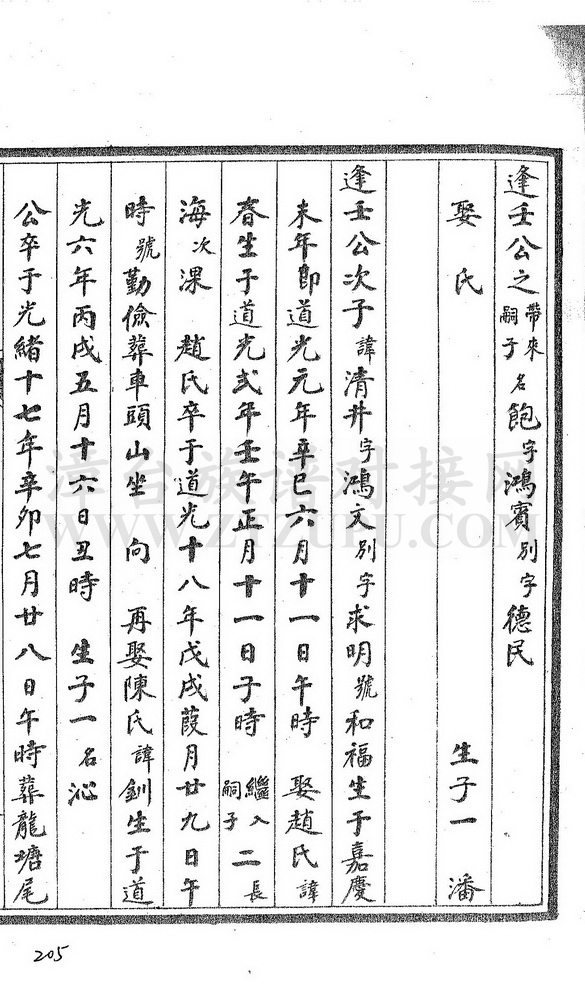 逢壬公之帶來嗣子名飽字鴻賓別字德民
娶氏 生子一 潘
逢壬公次子諱清井字鴻文別字求明號和福生于嘉慶
未年卽道光元年辛巳六月十一日午時 娶趙氏諱
春生于道光弍年壬午正月十一日子時 繼入嗣子二長
海次淉 趙氏卒于道光十八年戊戌葭月廿九日午
時號勤儉葬車頭山坐 向 再娶陳氏諱釧生于道
光六年丙戌五月十六日丑時 生子一名沁
公卒于光緒十七年辛卯七月廿八日午時葬龍塘尾
漳台族谱对接网
WWW.ZTZUPU.COM
205